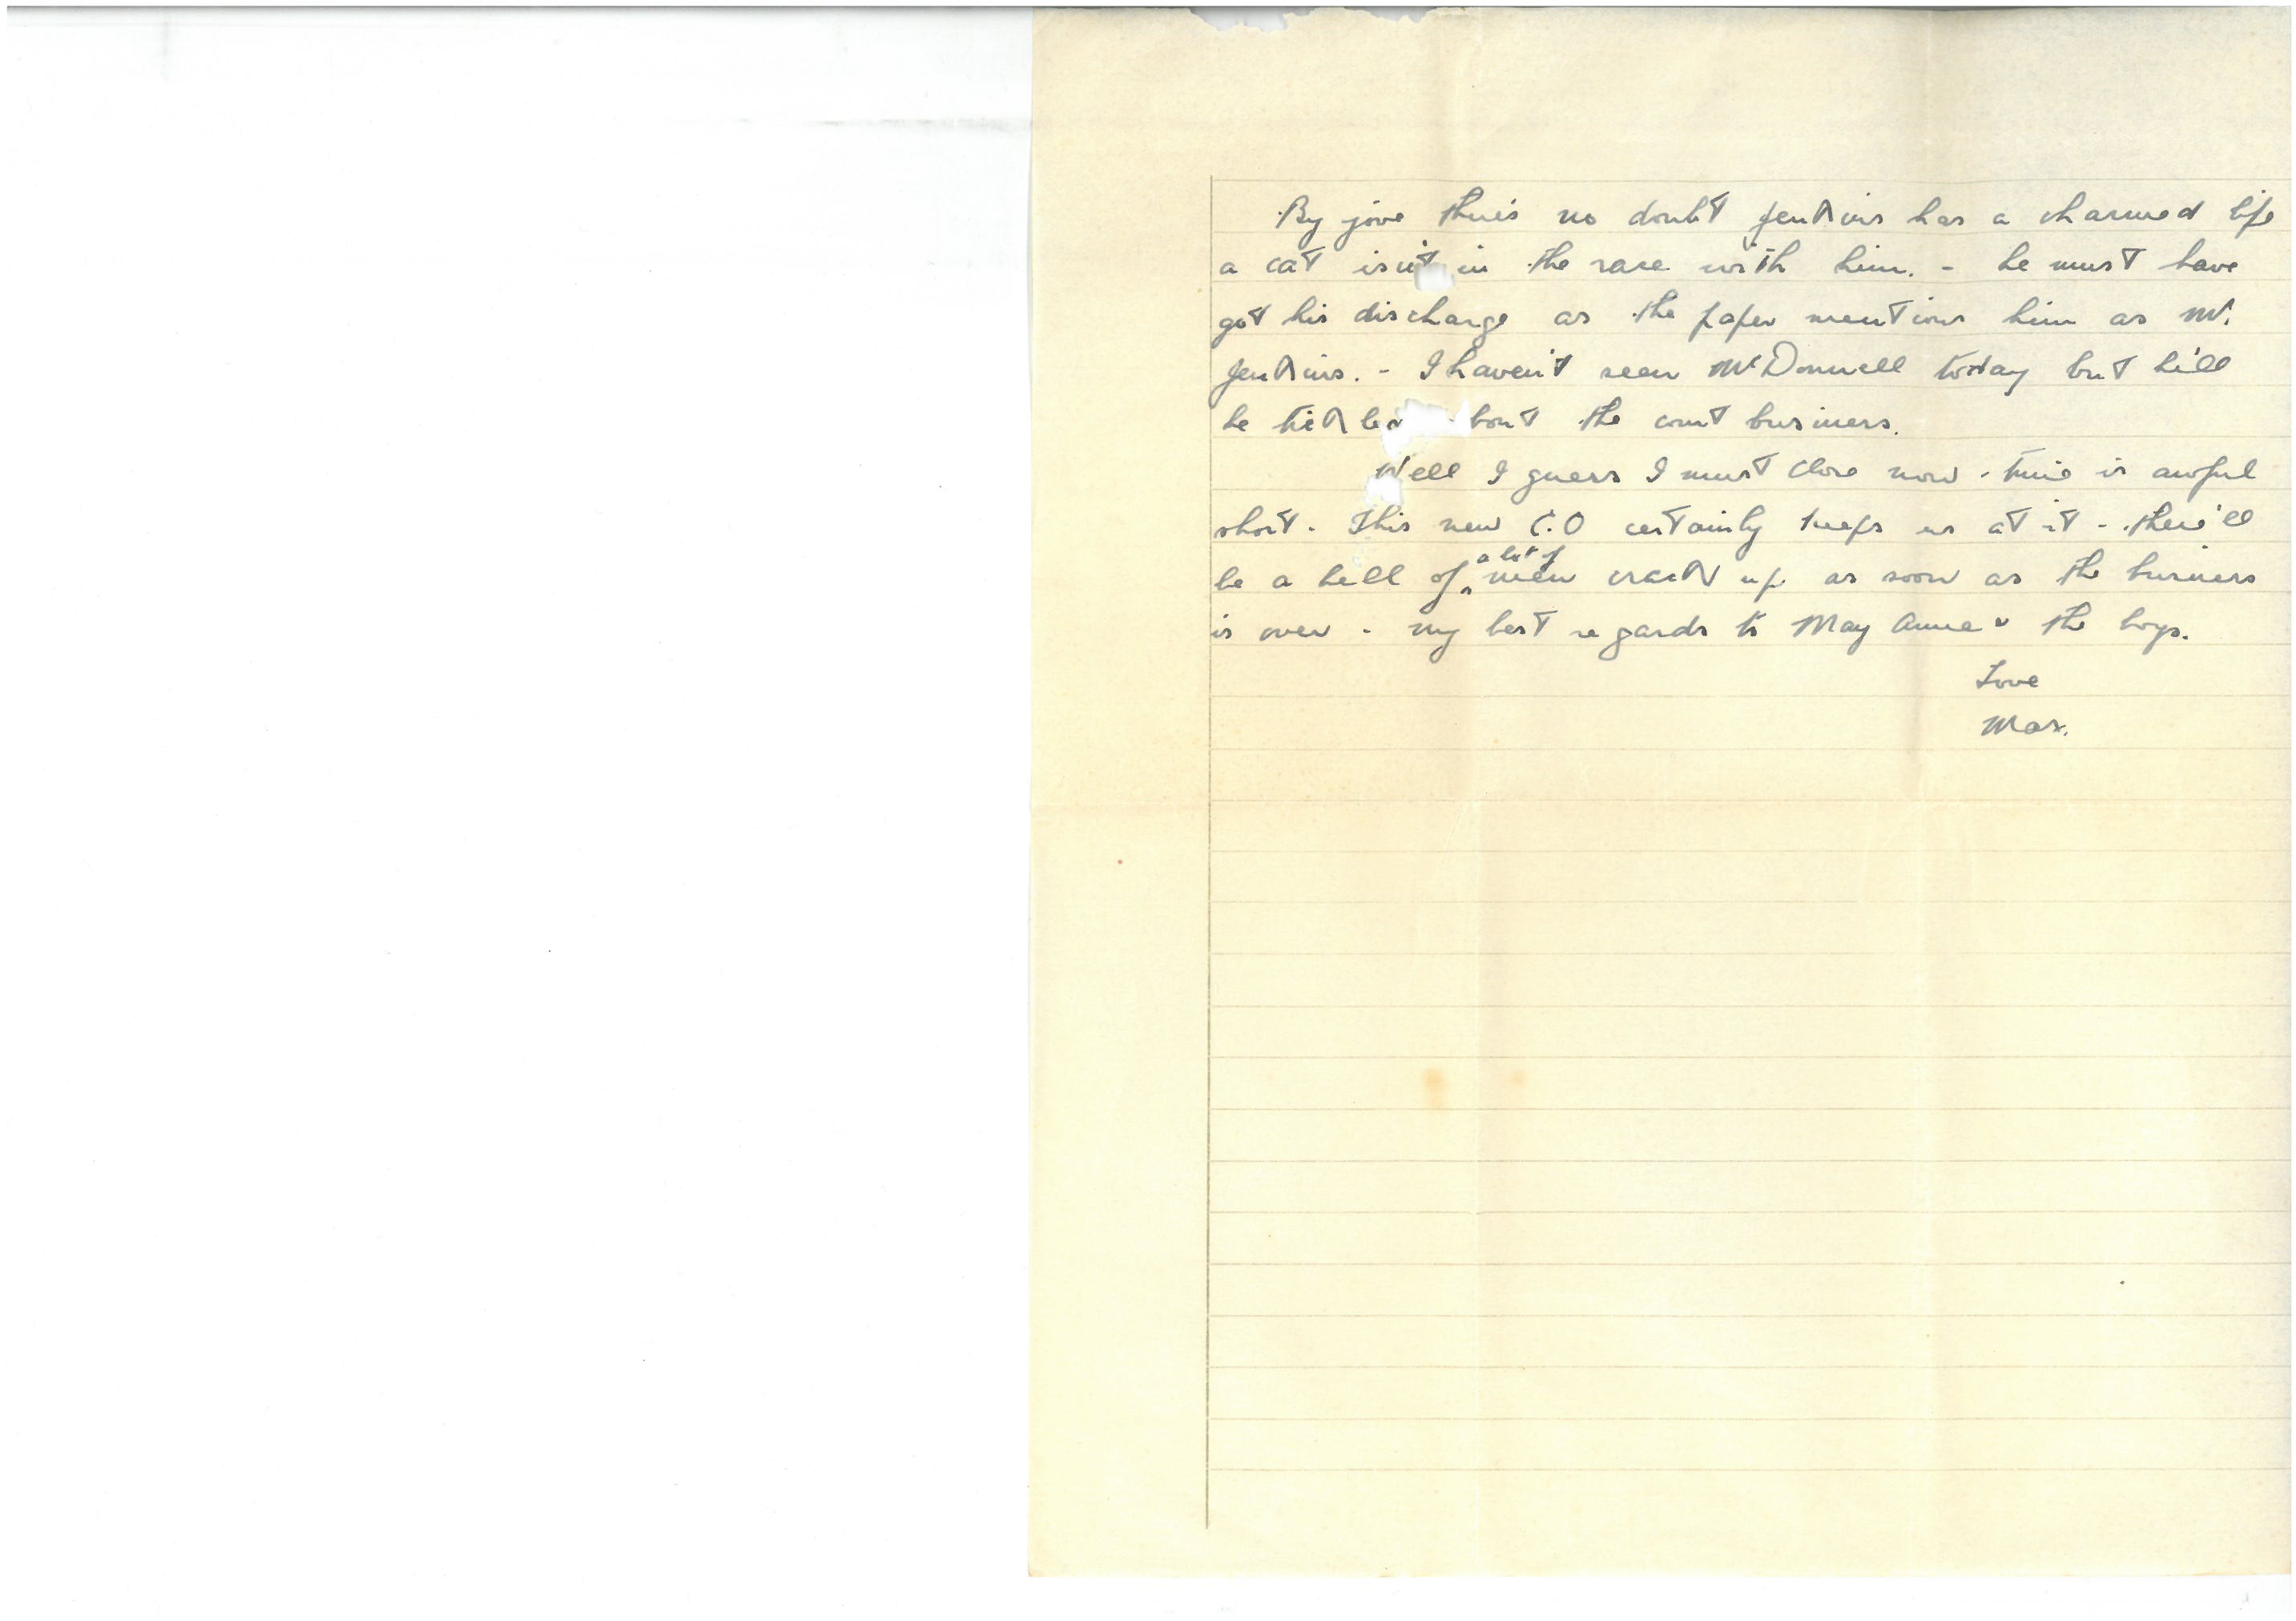 By jove there's no doubt Jenkins has a charmed life
a cat isn't in the race with him. - he must have
got his discharge as the paper mentions him as Mr.
Jenkins. - I haven't seen McDonnell today but he'll
be tickled bout the court business.
Well I guess I must close now - time is awful
short. This new C.O certainly keeps us at it - there'll
be a hell of a lot of men crack up as soon as the business
is over - my best regards to May Anne & the boys.
Love
Max.